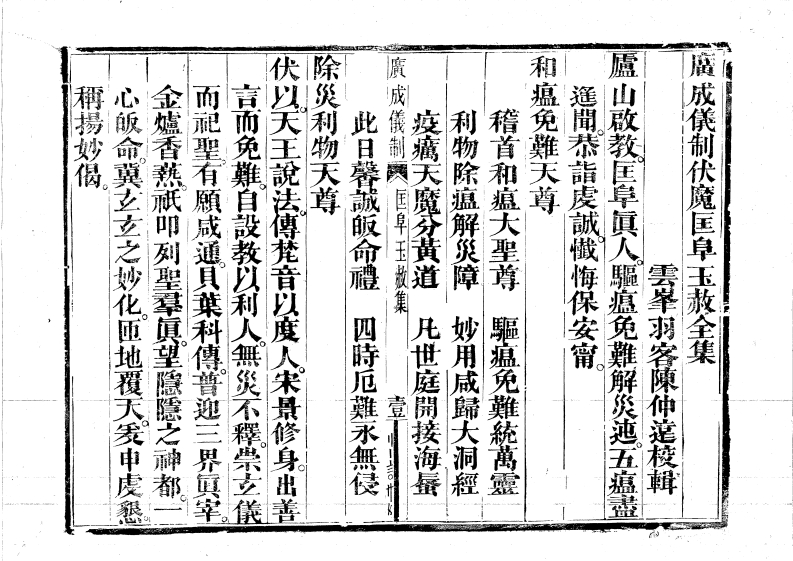 廣成儀制伏魔匡阜玉赦全集
雲峯羽客陳仲遠校輯
廬山啟教。匡阜眞人。驅瘟免難解災迍。五瘟盡
進聞。恭詣虔誠。懺悔保安甯。
和瘟免難天尊
稽首和瘟大聖尊　驅瘟免難統萬靈
利物除瘟解災障　妙用咸歸大洞經
疫癘天魔分黃道　凡世庭開接海蜃
廣成儀制　匡阜玉赦集　壹
此日馨誠皈命禮　四時厄難永無侵
除災利物天尊
伏以。天王說法。傳梵音以度人。宋景修身。出善
言而免難。自設教以利人。無災不釋。崇玄儀
而祀聖。有願咸通。貝葉科傳。普迎三界眞宰。
金爐香爇。祇叩列聖羣眞。望隱隱之神都。一
心皈命。冀玄玄之妙化。匝地覆天。爰申虔懇。
稱揚妙偈。